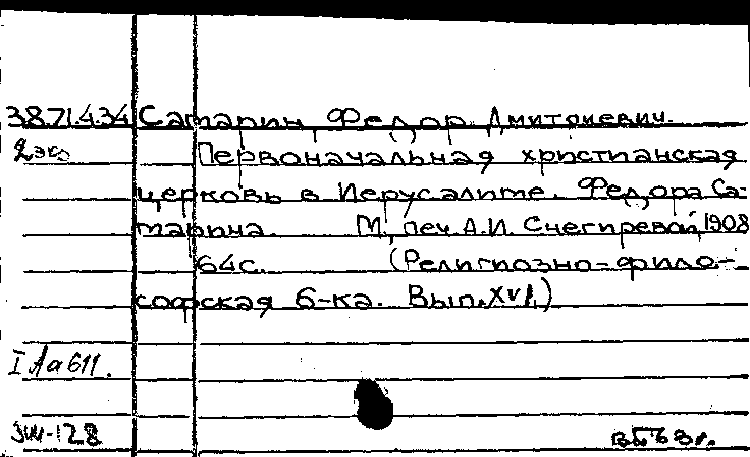 3871.4.34 Самарин, Федор Дмитриевич.
2 экз Первоначальная христианская
церковь в Иерусалиме. Федора Са-
марина. М., печ. А.И. Снегиревой, 1908
64с. (Религиозно-фило-
софская б-ка. Вып. XVI.)
I Аа 611.